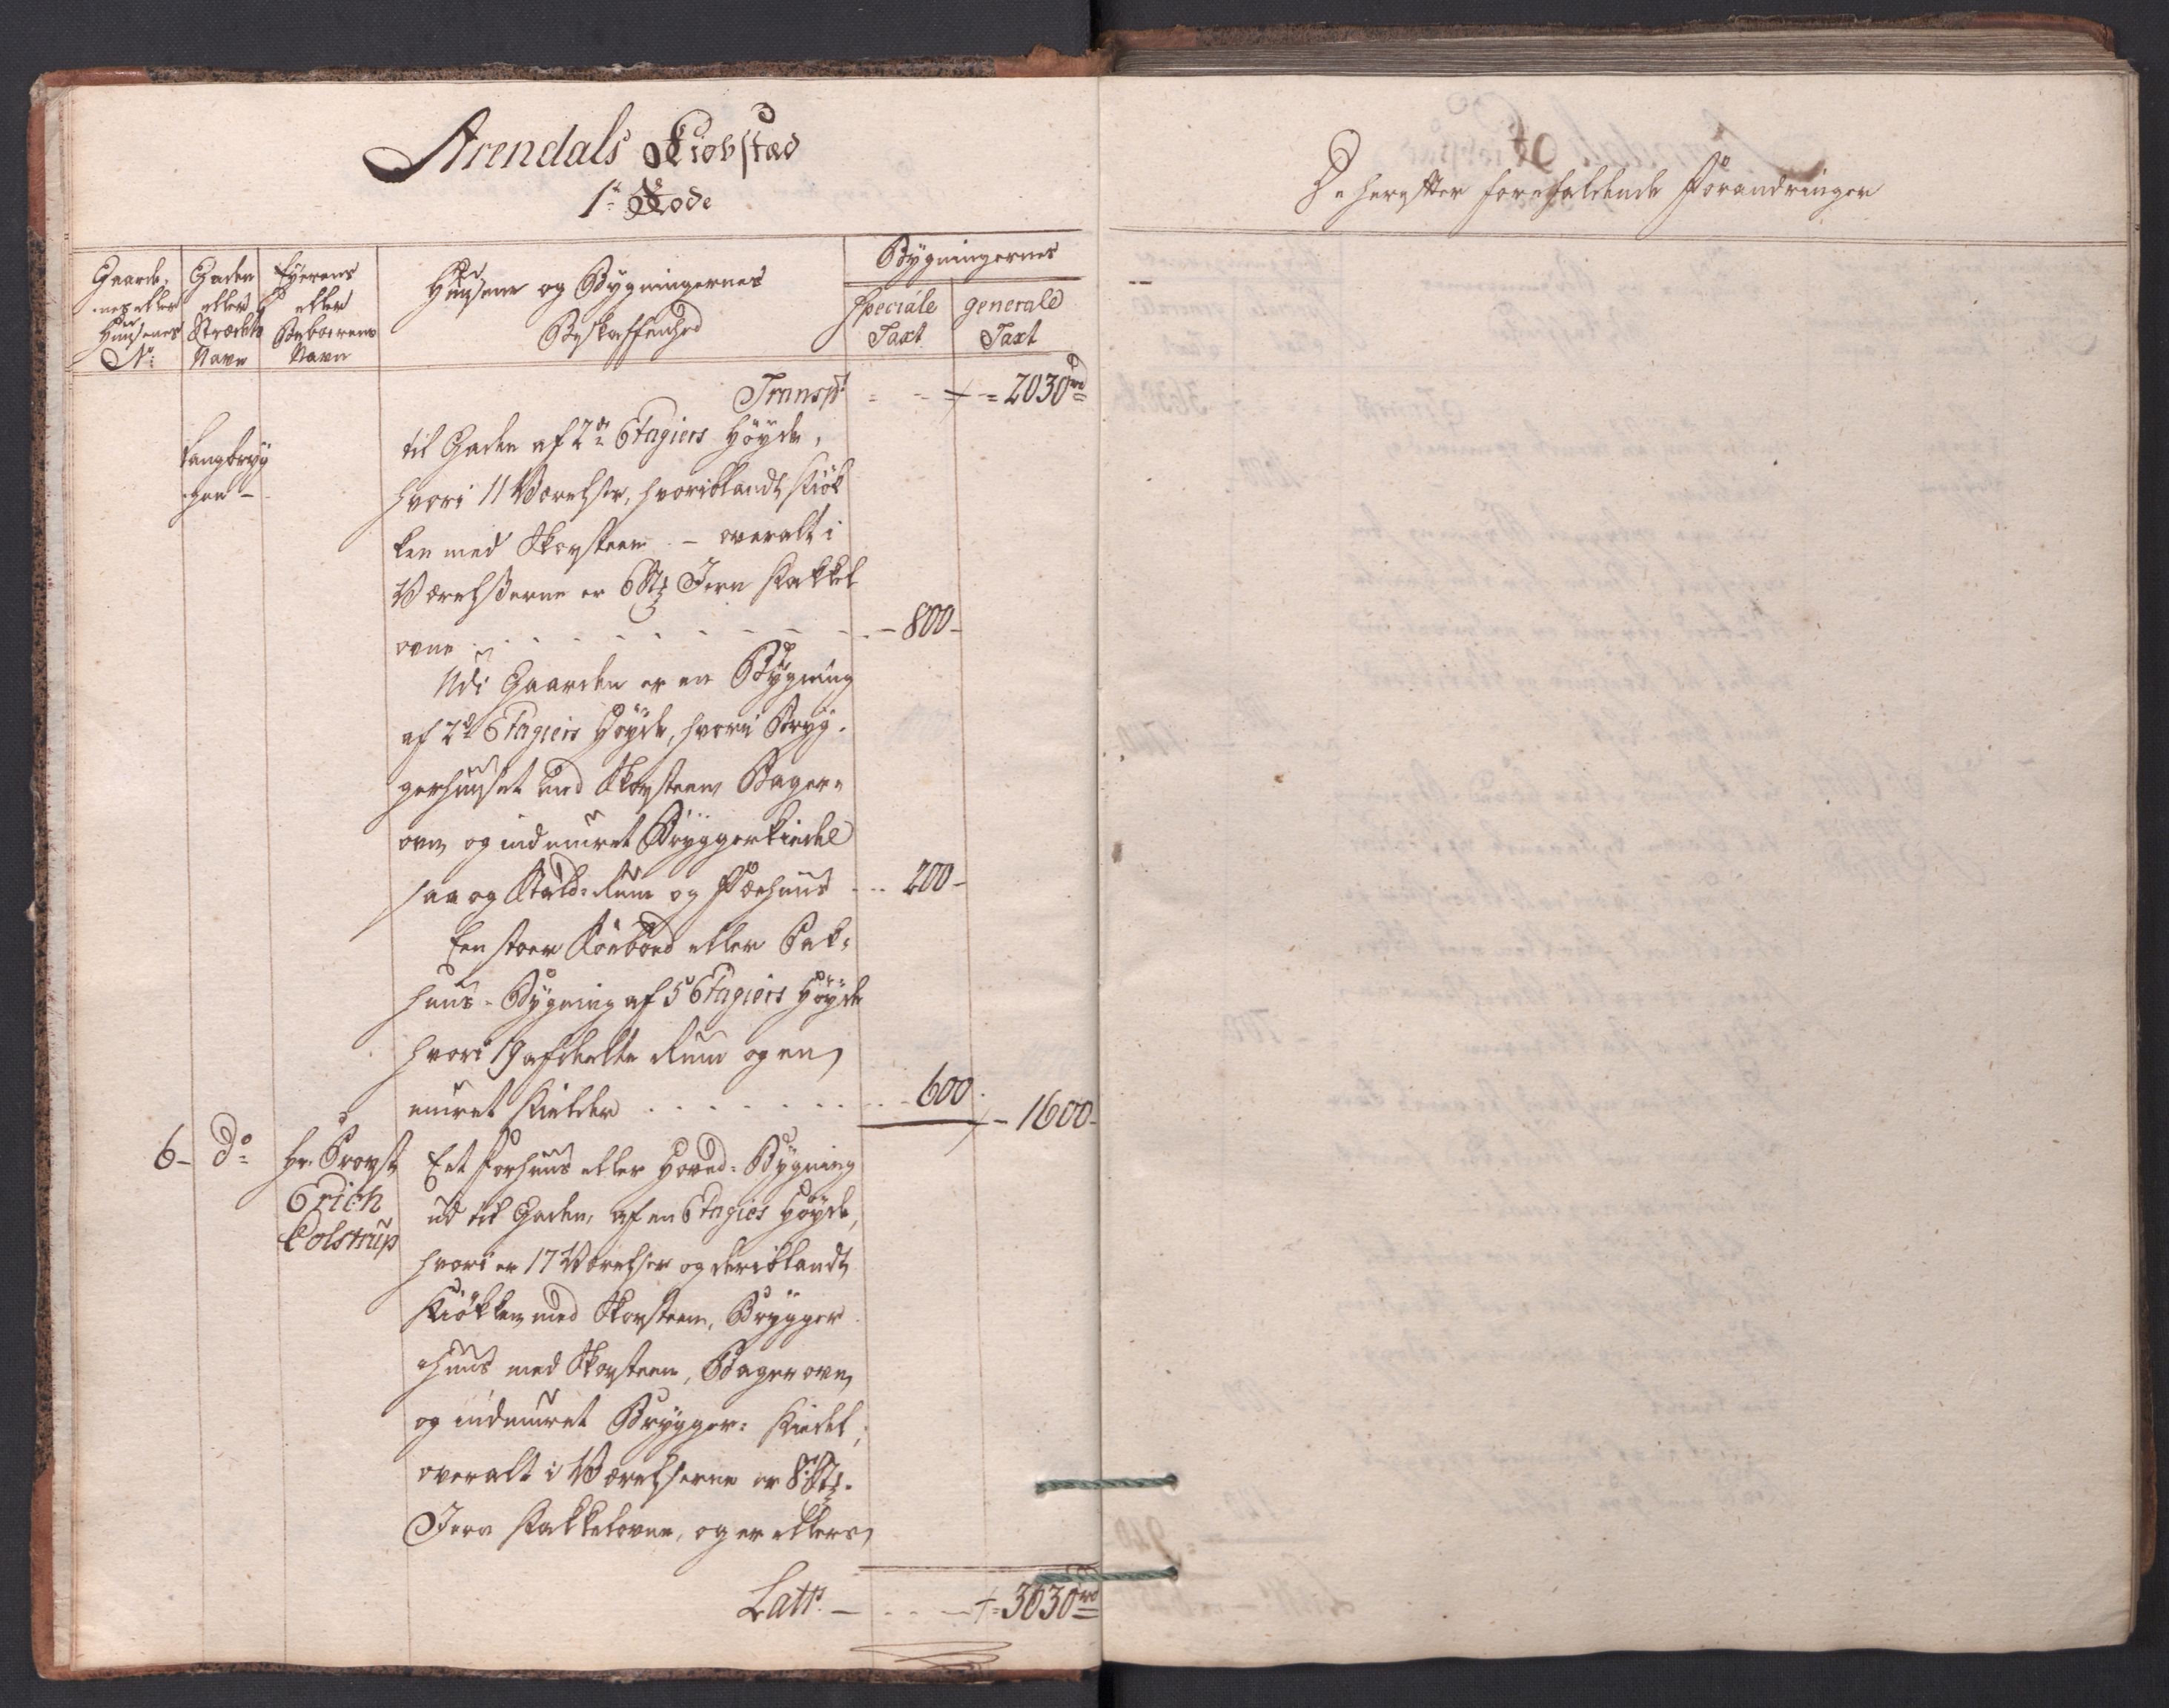 Arendals Kiøbstad
1te Rode
Gaarde,
nes eller
Huusenes
No:
Gaden
eller
Strædets
Navn
Eyerens
eller
Beboerens
Navn
Huusene og Bygningernes
Beskaffenhed
Bygningernes
speciale
Taxt
generale
Taxt
Transpt = - - = 2030 rd
Langbryg
gen -
til Gaden af 2de Etagiers Høyde,
hvori 11 Værelser, hvoriblandt Kiøk
ken med Skorsteen - overalt i
Værelserne er 6 Stk Jern Kakkel
ovne - - - 800 -
Udi Gaarden er en Bygning
af 2de Etagiers Høyde, hvori Bryg-
gerhuuset med Skorsteen Bager-
ovn og indmuret Bryggerkiedel
saa og Stald-Rum og Fæehuus - - 200 -
Een stoer Søeboed eller Pak-
huus-Bygning af 5 Etagiers Høyde
hvori 19 afdeelte Rum og en
muret Kielder - - - 600 - 1600 -
6 - Do
Hr. Provst
Erich
Colstrup
Eet Forhuus eller Hoved-Bygning
ud til Gaden, af en Etagies Høyde,
hvori er 17 Værelser og deriblandt
Kiøkken med Skorsteen, Brygger
huus med Skorsteen, Bagerovn
og indmuret Brygger-Kiedel,
overalt i Værelserne er 8 Stk.
Jern Kakkelovne, og er ellers
Latr. - - - 3630 rd
De herefter forefaldende Forandringer